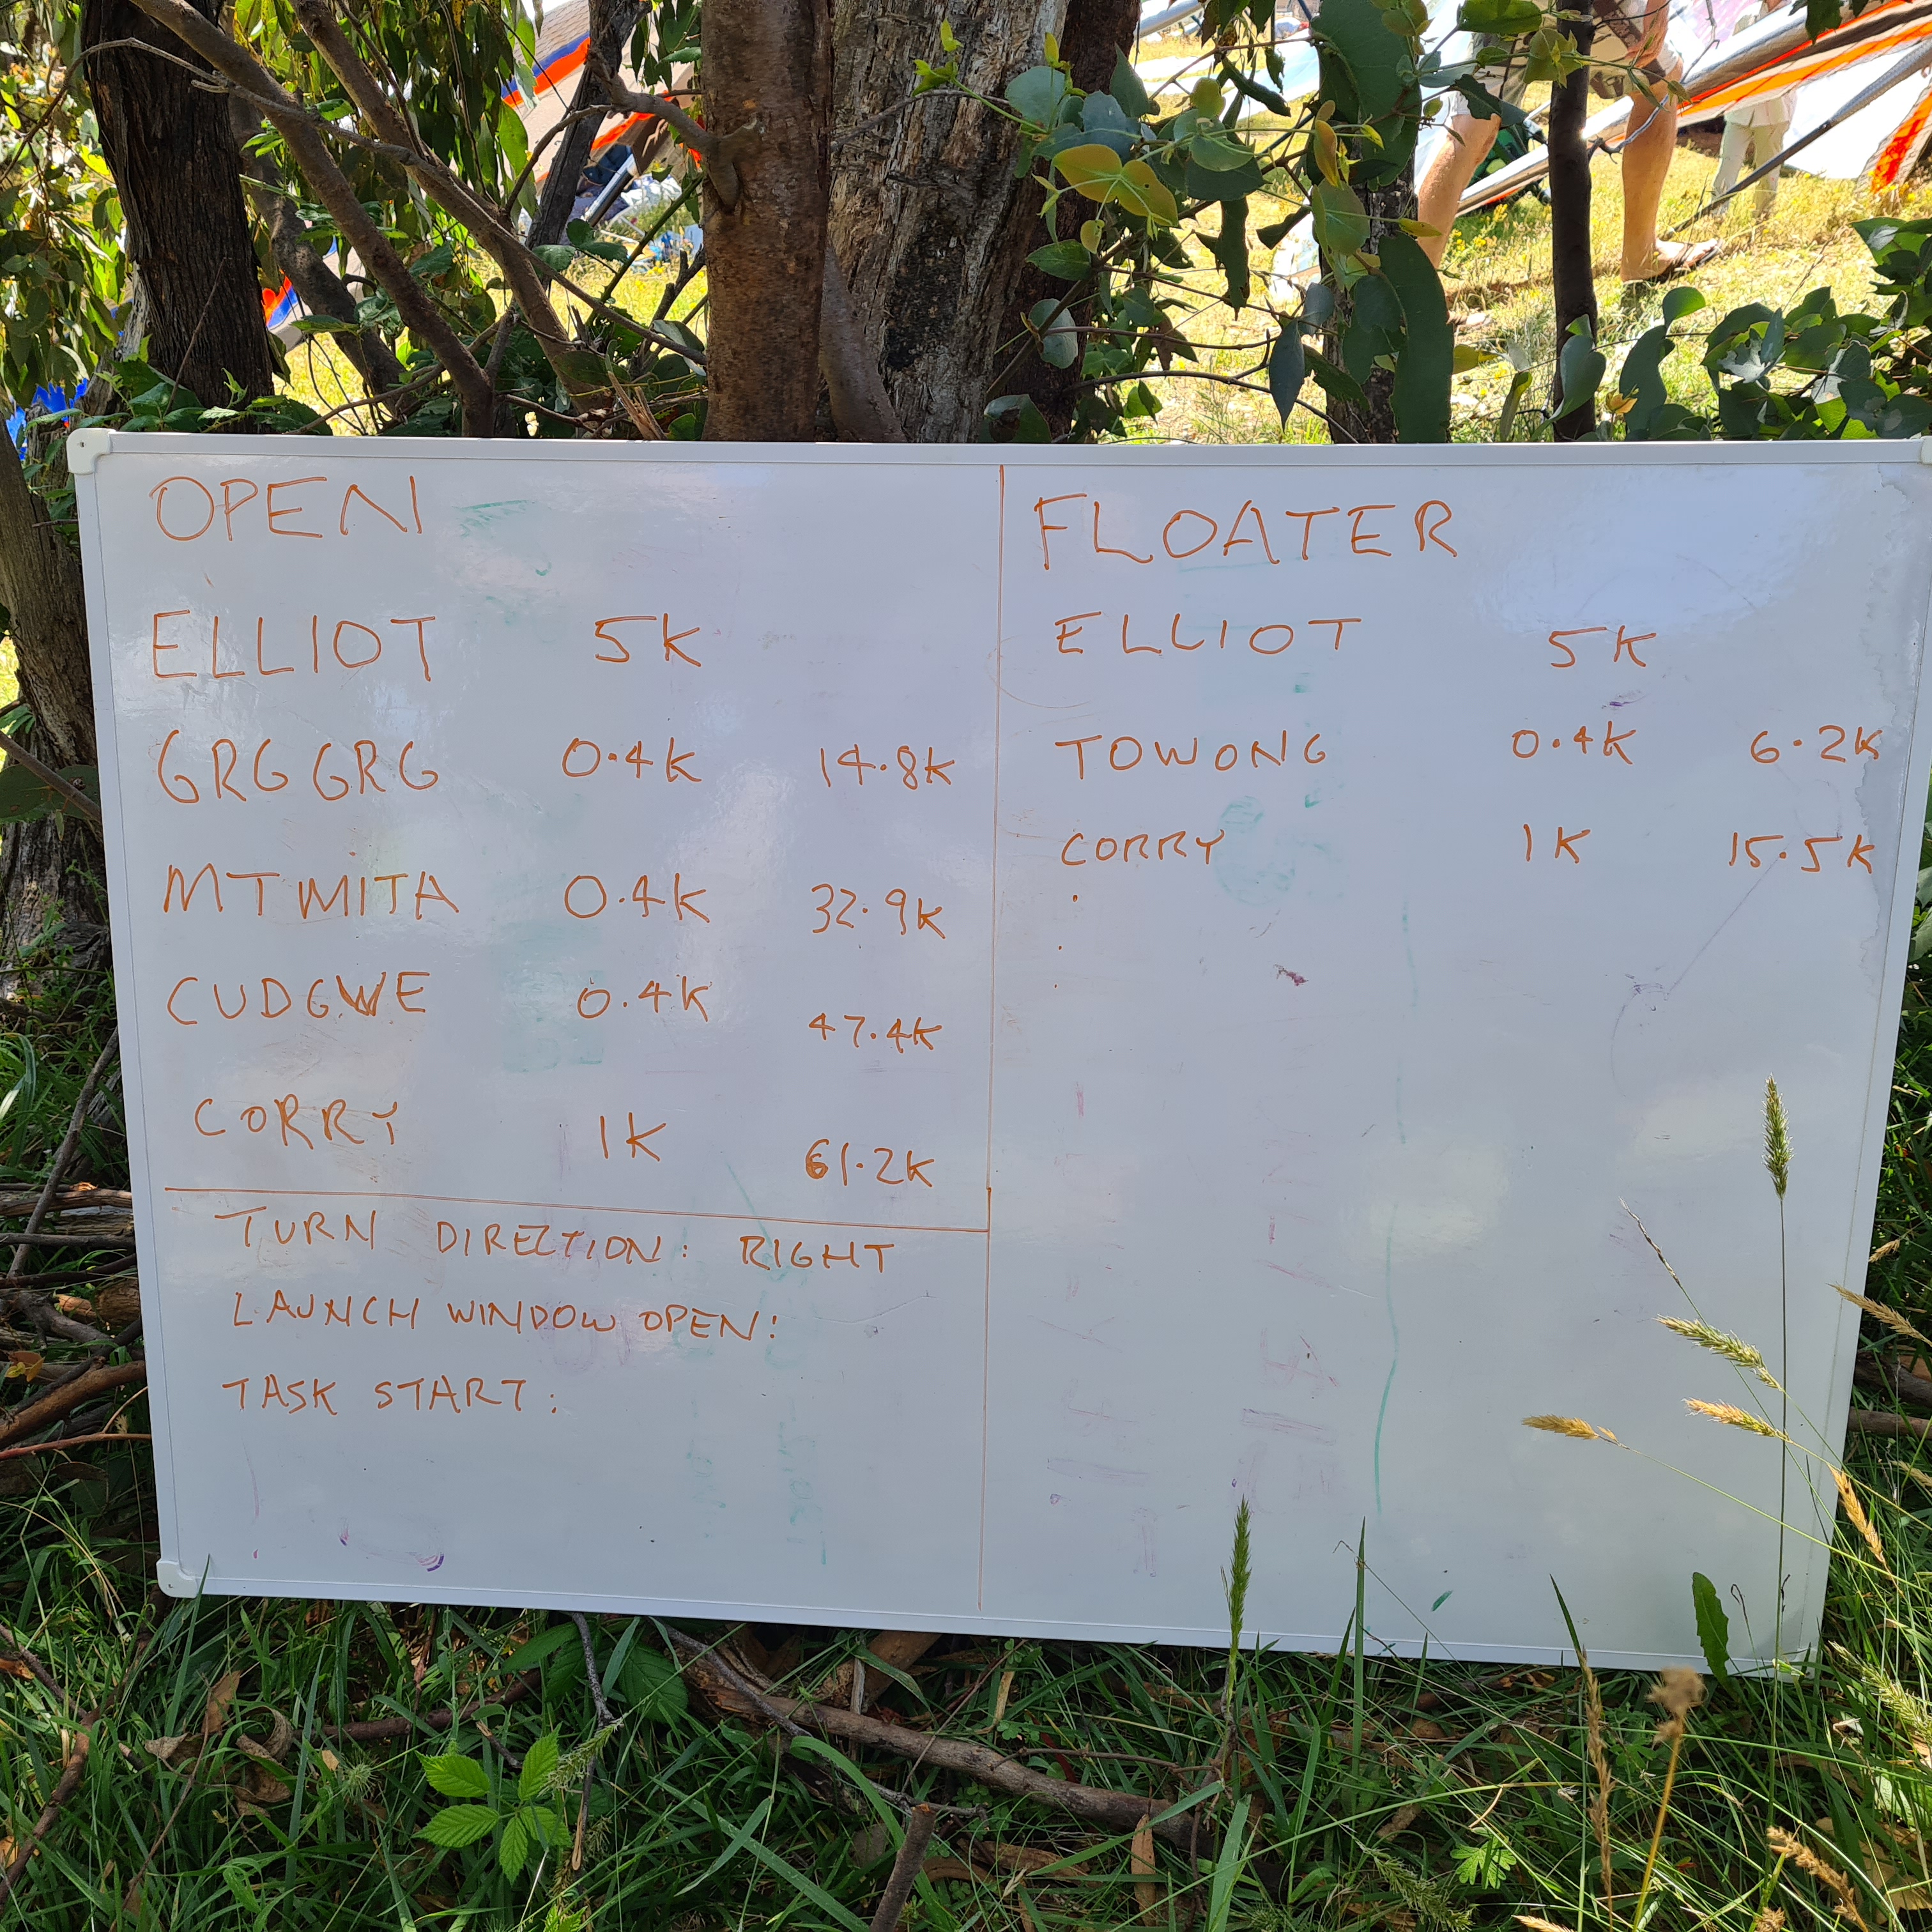 OPEN
ELLIOT 5K
GRGGRG 0.4K 14.8K
MTMITA 0.4K 32.9K
CUDGWE 0.4K 47.4K
CORRY 1K 61.2K
TURN DIRECTION: RIGHT
LAUNCH WINDOW OPEN:
TASK START:
FLOATER
ELLIOT 5K
TOWONG 0.4K 6.2K
CORRY 1K 15.5K